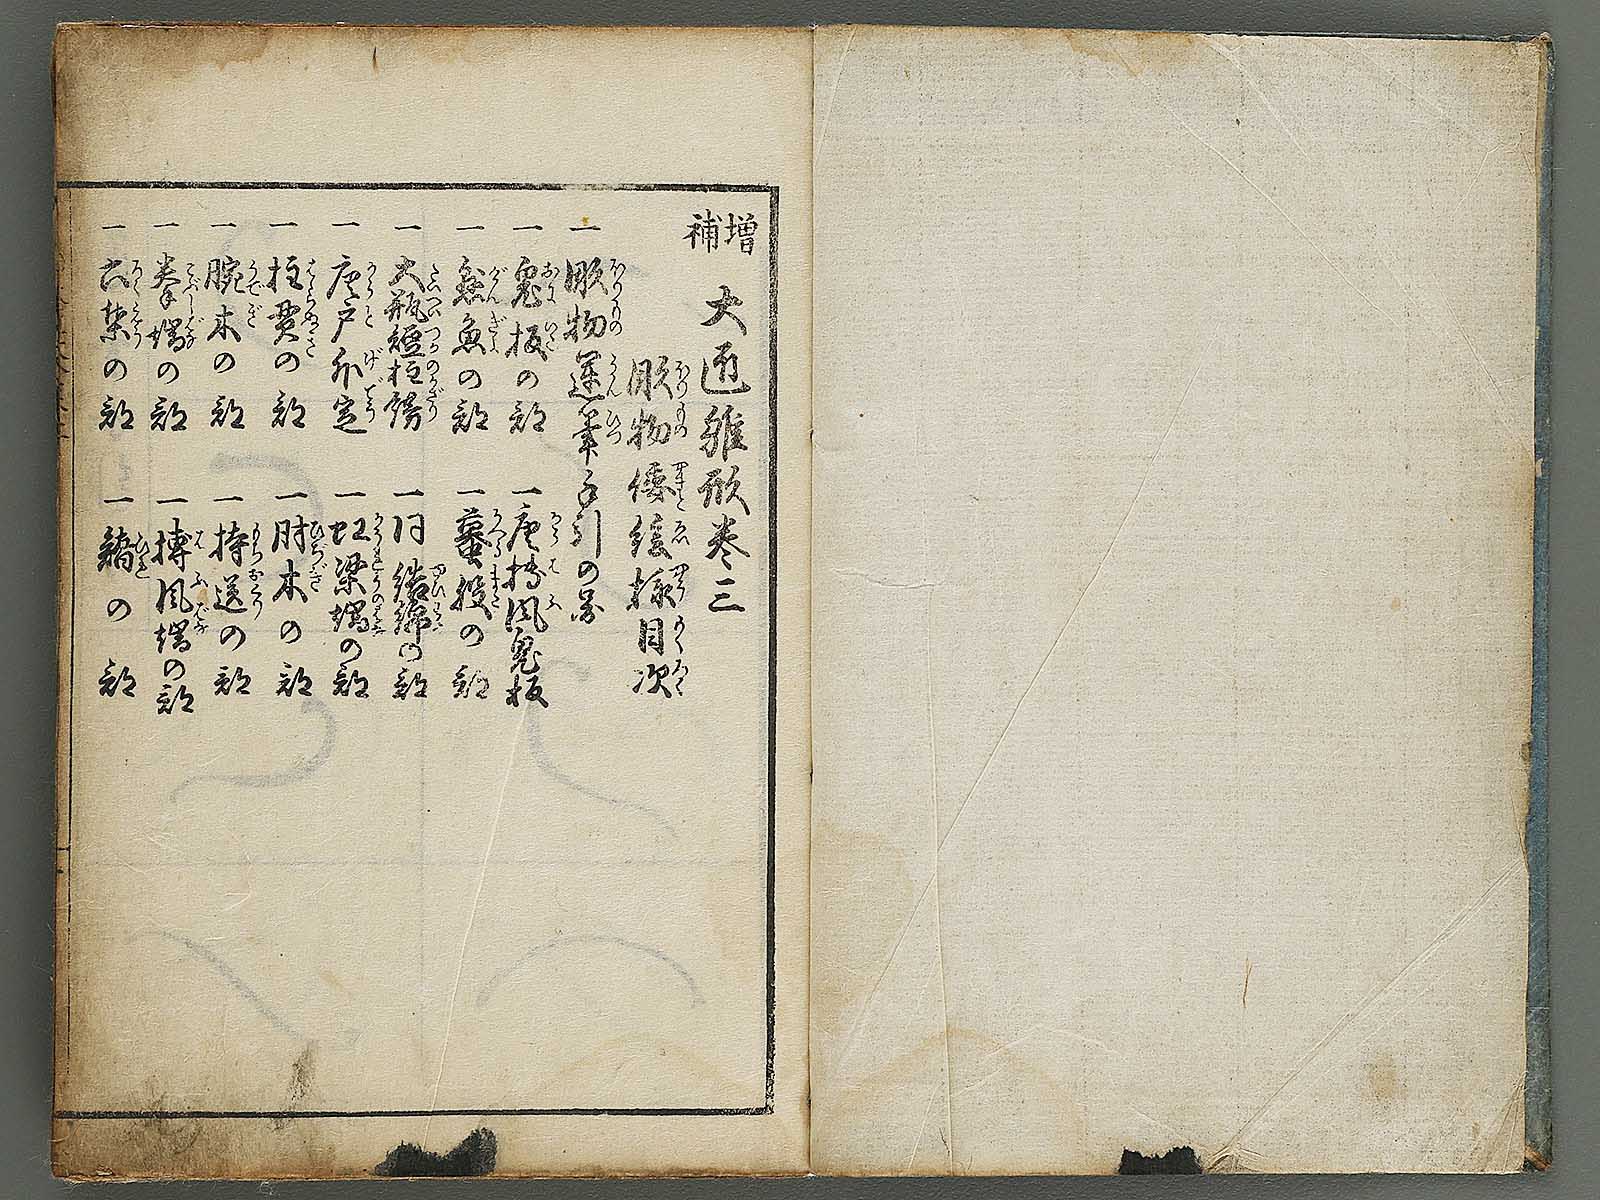 増補 大匠雛形巻三
彫物倭絵様目次
一 彫物運筆手引の図
一 鬼板の部 一 唐搏風鬼板
一 懸魚の部 一 蟇股の部
一 大瓶短柱餝 一 同結綿の部
一 唐戸外定 一 虹梁端の部
一 柱貫の部 一 肘木の部
一 腕木の部 一 持送の部
一 拳端の部 一 搏風端の部
一 六葉の部 一 鰭の部